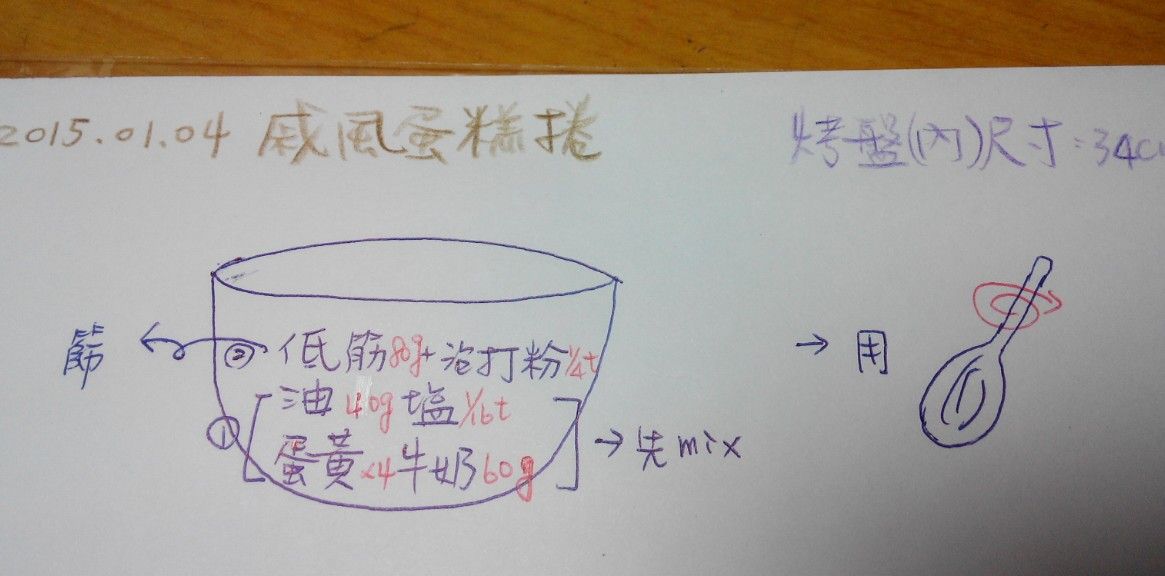 2015.01.04 戚風蛋糕捲
烤盤(內)尺寸:34c
篩 ② 低筋80g+泡打粉1/4t
① 油40g 塩1/16t
蛋黃×4 牛奶60g → 先mix
→ 用